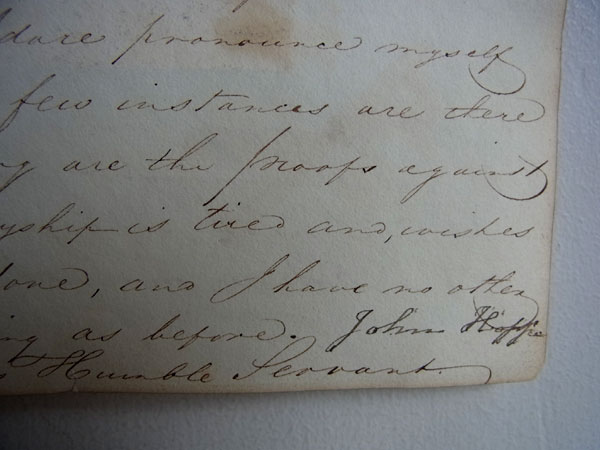 dare pronounce myself
few instances are there
are the proofs against
yship is tired and, wishes
done, and I have no other
ing as before. John
Humble Servant.